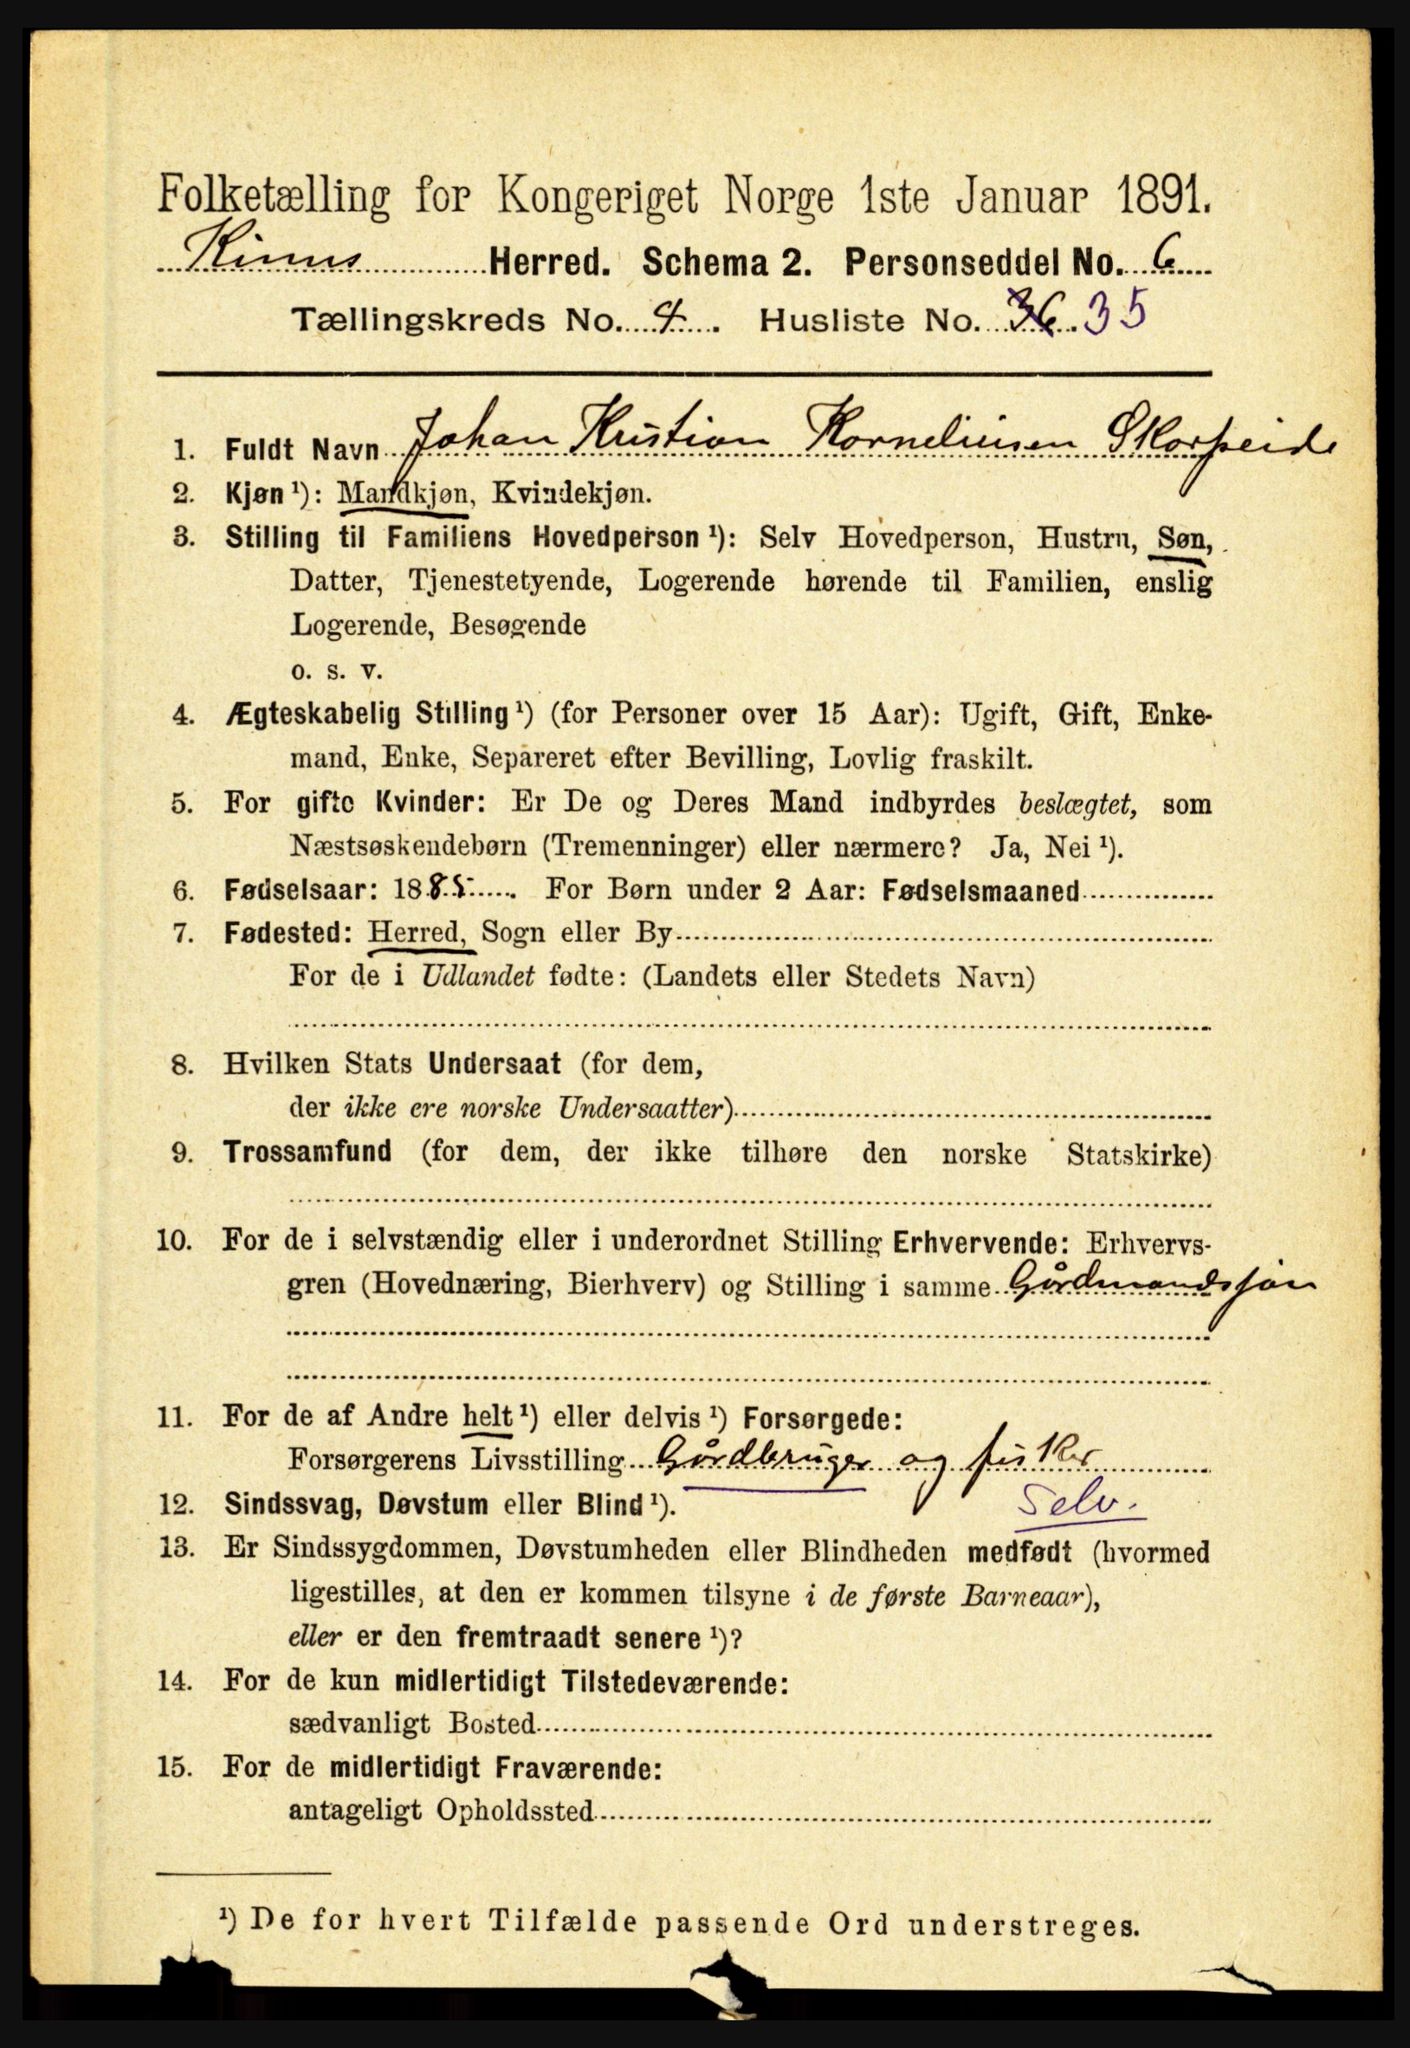 Folketælling for Kongeriget Norge 1ste Januar 1891.
Kinns Herred. Schema 2. Personseddel No. 6
Tællingskreds No. 4. Husliste No. 36. 35
1. Fuldt Navn Johan Kristian Korneliusen Skorpeide
2. Kjøn ¹): Mandkjøn, Kvindekjøn.
3. Stilling til Familiens Hovedperson ¹): Selv Hovedperson, Hustru, Søn,
Datter, Tjenestetyende, Logerende hørende til Familien, enslig
Logerende, Besøgende
o. s. v.
4. Ægteskabelig Stilling ¹) (for Personer over 15 Aar): Ugift, Gift, Enke-
mand, Enke, Separeret efter Bevilling, Lovlig fraskilt.
5. For gifte Kvinder: Er De og Deres Mand indbyrdes beslægtet, som
Næstsøskendebørn (Tremenninger) eller nærmere? Ja, Nei ¹).
6. Fødselsaar: 1885. For Børn under 2 Aar: Fødselsmaaned
7. Fødested: Herred, Sogn eller By
For de i Udlandet fødte: (Landets eller Stedets Navn)
8. Hvilken Stats Undersaat (for dem,
der ikke ere norske Undersaatter)
9. Trossamfund (for dem, der ikke tilhøre den norske Statskirke)
10. For de i selvstændig eller i underordnet Stilling Erhvervende: Erhvervs-
gren (Hovednæring, Bierhverv) og Stilling i samme Gårdmandssøn
11. For de af Andre helt ¹) eller delvis ¹) Forsørgede:
Forsørgerens Livsstilling Gårdbruger og fisker
Selv.
12. Sindssvag, Døvstum eller Blind ¹).
13. Er Sindssygdommen, Døvstumheden eller Blindheden medfødt (hvormed
ligestilles, at den er kommen tilsyne i de første Barneaar),
eller er den fremtraadt senere ¹)?
14. For de kun midlertidigt Tilstedeværende:
sædvanligt Bosted
15. For de midlertidigt Fraværende:
antageligt Opholdssted
¹) De for hvert Tilfælde passende Ord understreges.